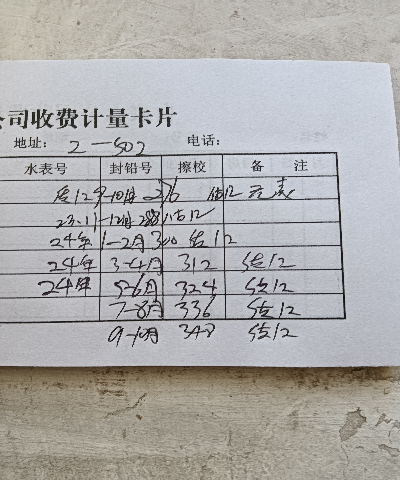 公司收费计量卡片
地址: 2-502 电话:
水表号 封铅号 擦校 备 注
9-10月 276 估12
23.11-12月 288 估12
24年 1-2月 300 估12
24年 3-4月 312 估12
24年 5-6月 324 估12
7-8月 336 估12
9-10月 348 估12